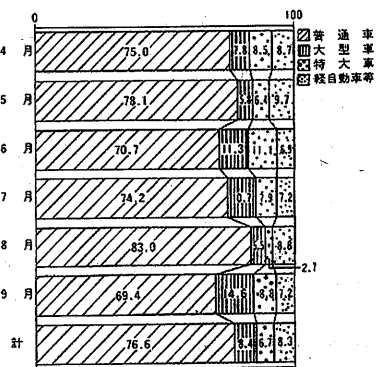 0 100
普通車
大型車
特大車
軽自動車等
4月 75.0 7.8 8.5 8.7
5月 78.1 5.8 6.4 9.7
6月 70.7 11.3 11.1 6.9
7月 74.2 10.7 7.9 7.2
8月 83.0 5.5 8.8
2.7
9月 69.4 14.6 8.8 7.2
計 76.6 8.4 6.7 8.3